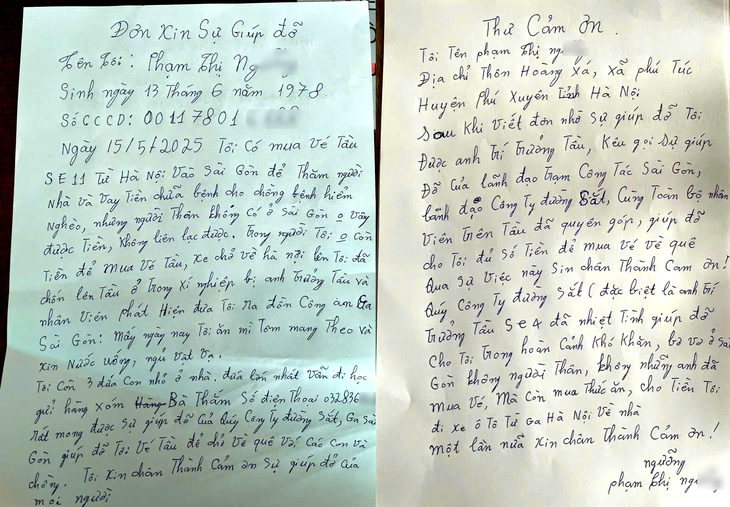 Đơn xin Sự Giúp đỡ
Tên Tôi: Phạm Thị Ng
Sinh ngày 13 Tháng 6 năm 1978
Số CCCD: 00117801
Ngày 15/5/2025 Tôi Có mua vé Tàu
SE11 Từ Hà Nôi Vào Sài Gòn để Thăm người
Nhà và Vay Tiền chữa bệnh cho chồng bệnh hiểm
Nghèo, nhưng người Thân không Có ở Sài Gòn o vây
được Tiền, không liên lạc được. Trong người Tôi o Còn
Tiền để Mua Vé Tàu, xe chở về hà nội lên Tôi đã
chốn lên Tàu ở Trong xí nghiệp bị anh Trưởng Tàu và
nhân viên phát Hiện đưa Tôi ra đồn Công an Ga
Sài Gòn: Mấy ngày nay Tôi ăn mì Tôm mang Theo và
Xin Nước uống, ngủ vật vạ.
Tôi Còn 3 đứa Con nhỏ ở nhà. đứa lớn nhất vẫn đi học
gửi hàng xóm Bà Thắm Số điện Thoại 032836
rất mong được Sự giúp đỡ Của Qúy Công Ty đường Sắt, Ga Sài
Gòn giúp đỡ Tôi Vé Tàu để để về quê với Các Con và
chồng. Tôi xin chân Thành Cảm ơn Sự giúp đỡ của
mọi người
Thư Cảm ơn
Tôi Tên phạm Thị ng
Địa chỉ Thôn Hoàng Xá, xã phú Túc
Huyện Phú Xuyên Tỉnh Hà Nôi
Sau khi viết đơn nhờ Sự giúp đỡ Tôi
Được anh Trí Trưởng Tàu, Kêu gọi Sự giúp
Đỡ Của lãnh đạo Trạm Công Tác Sài Gòn,
lãnh đạo Công Ty đường Sắt, Cùng Toàn bộ nhân
Viên Trên Tàu đã quyên góp, giúp đỡ
cho Tôi đủ Số Tiền để mua vé về quê
Qua Sự việc này Sin chân Thành Cam ơn!
Qúy Công Ty đường Sắt (đặc biệt là anh Trí
Trưởng Tàu SE4 đã nhiệt Tình giúp đỡ
Cho Tôi Trong hoàn Cảnh Khó Khăn, bơ vơ ở Sài
Gòn không người Thân, không những anh đã
mua Vé, Mà Còn mua Thức ăn, cho Tiền Tôi
đi xe ô Tô Từ Ga Hà Nôi Về nhà
một lần nữa xin chân Thành Cảm ơn!
người
phạm Thị ng